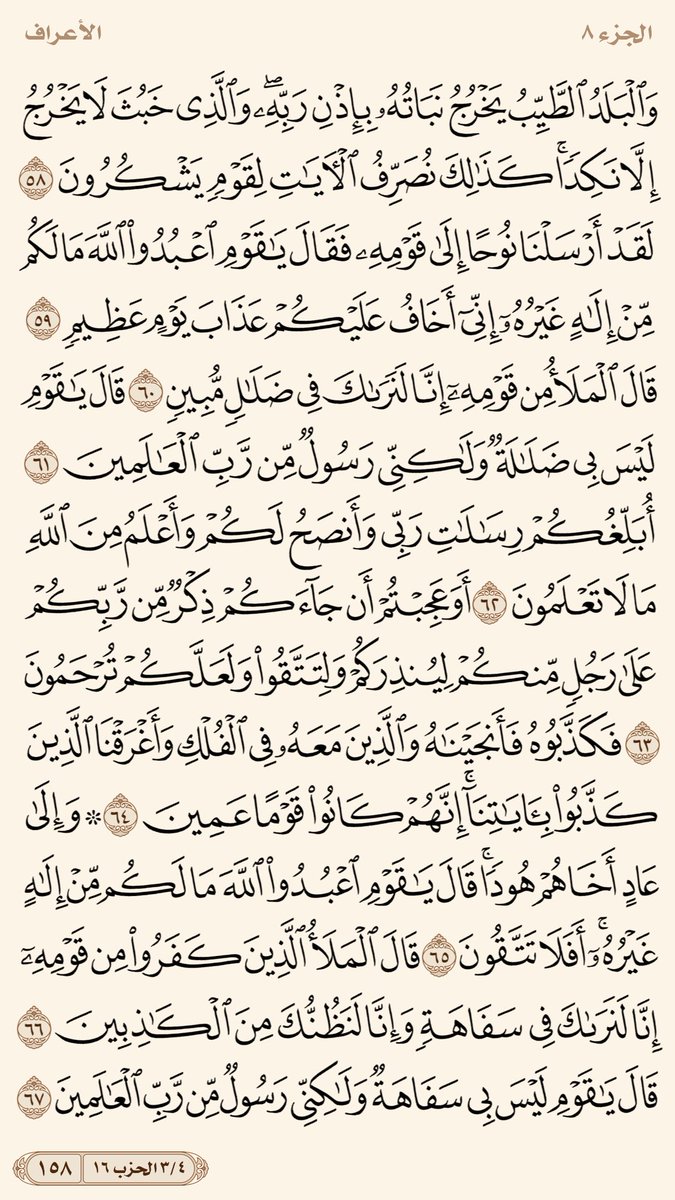 الجزء ٨ الأعراف
وَٱلۡبَلَدُ ٱلطَّيِّبُ يَخۡرُجُ نَبَاتُهُۥ بِإِذۡنِ رَبِّهِۦۖ وَٱلَّذِي خَبُثَ لَا يَخۡرُجُ
إِلَّا نَكِدٗاۚ كَذَٰلِكَ نُصَرِّفُ ٱلۡأٓيَٰتِ لِقَوۡمٖ يَشۡكُرُونَ ٥٨
لَقَدۡ أَرۡسَلۡنَا نُوحًا إِلَىٰ قَوۡمِهِۦ فَقَالَ يَٰقَوۡمِ ٱعۡبُدُواْ ٱللَّهَ مَا لَكُم
مِّنۡ إِلَٰهٍ غَيۡرُهُۥٓ إِنِّيٓ أَخَافُ عَلَيۡكُمۡ عَذَابَ يَوۡمٍ عَظِيمٖ ٥٩
قَالَ ٱلۡمَلَأُ مِن قَوۡمِهِۦٓ إِنَّا لَنَرَىٰكَ فِي ضَلَٰلٖ مُّبِينٖ ٦٠ قَالَ يَٰقَوۡمِ
لَيۡسَ بِي ضَلَٰلَةٞ وَلَٰكِنِّي رَسُولٞ مِّن رَّبِّ ٱلۡعَٰلَمِينَ ٦١
أُبَلِّغُكُمۡ رِسَٰلَٰتِ رَبِّي وَأَنصَحُ لَكُمۡ وَأَعۡلَمُ مِنَ ٱللَّهِ
مَا لَا تَعۡلَمُونَ ٦٢ أَوَعَجِبۡتُمۡ أَن جَآءَكُمۡ ذِكۡرٞ مِّن رَّبِّكُمۡ
عَلَىٰ رَجُلٖ مِّنكُمۡ لِيُنذِرَكُمۡ وَلِتَتَّقُواْ وَلَعَلَّكُمۡ تُرۡحَمُونَ
٦٣ فَكَذَّبُوهُ فَأَنجَيۡنَٰهُ وَٱلَّذِينَ مَعَهُۥ فِي ٱلۡفُلۡكِ وَأَغۡرَقۡنَا ٱلَّذِينَ
كَذَّبُواْ بِـَٔايَٰتِنَآۚ إِنَّهُمۡ كَانُواْ قَوۡمًا عَمِينَ ٦٤ ۞ وَإِلَىٰ
عَادٍ أَخَاهُمۡ هُودٗاۚ قَالَ يَٰقَوۡمِ ٱعۡبُدُواْ ٱللَّهَ مَا لَكُم مِّنۡ إِلَٰهٍ
غَيۡرُهُۥٓۚ أَفَلَا تَتَّقُونَ ٦٥ قَالَ ٱلۡمَلَأُ ٱلَّذِينَ كَفَرُواْ مِن قَوۡمِهِۦٓ
إِنَّا لَنَرَىٰكَ فِي سَفَاهَةٖ وَإِنَّا لَنَظُنُّكَ مِنَ ٱلۡكَٰذِبِينَ ٦٦
قَالَ يَٰقَوۡمِ لَيۡسَ بِي سَفَاهَةٞ وَلَٰكِنِّي رَسُولٞ مِّن رَّبِّ ٱلۡعَٰلَمِينَ ٦٧
٣/٤ الحزب ١٦ ١٥٨